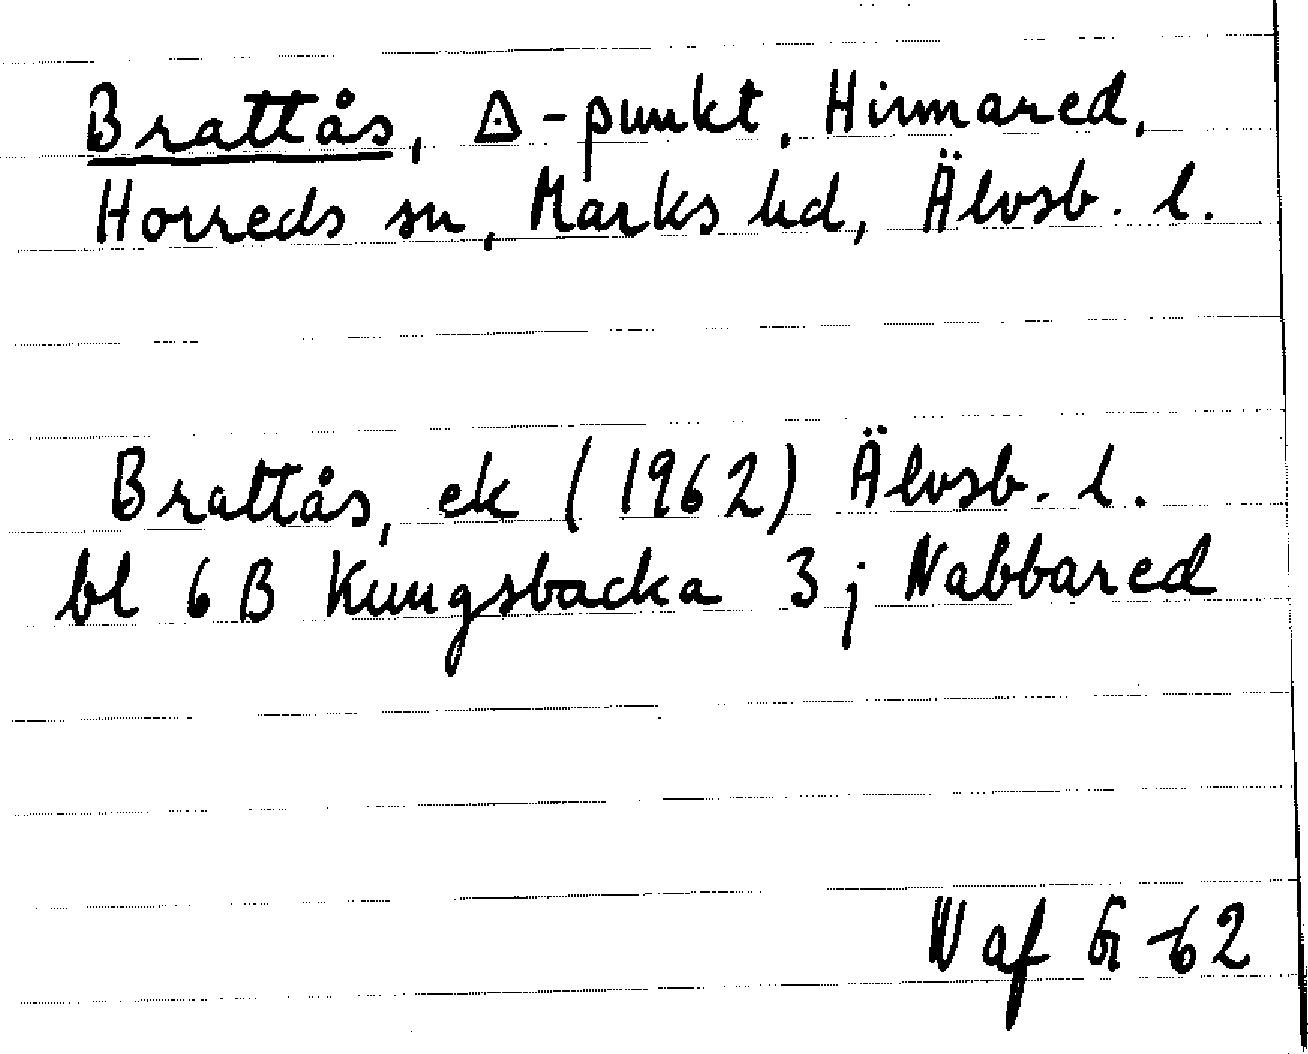 Brattås, △-punkt, Hinnared,
Horreds sn, Marks hd, Älvsb. l.
Brattås, ek (1962) Älvsb. l.
bl 6 B Kungsbacka 3 j Nabbared
-62